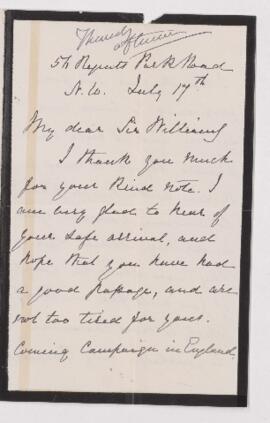 Thursday
afternoon
54 Regents Park Road
N.W. July 17th
My dear Sir William
I thank you much
for your kind note. I
am very glad to hear of
your safe arrival, and
hope that you have had
a good passage, and are
not too tired for your
coming campaign in England